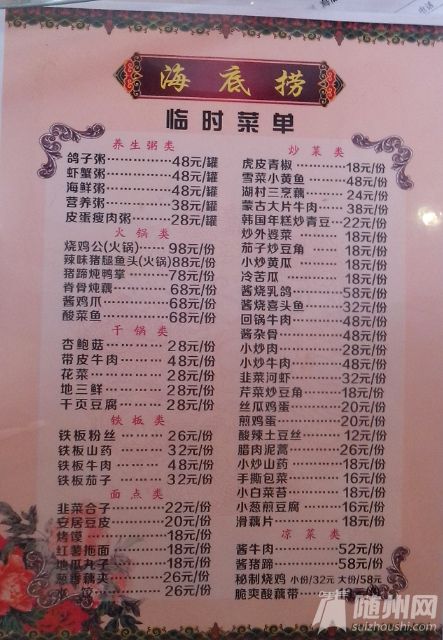 海底捞
临时菜单
养生粥类
鸽子粥 48元/罐
虾蟹粥 48元/罐
海鲜粥 48元/罐
营养粥 38元/罐
皮蛋瘦肉粥 28元/罐
火锅类
烧鸡公(火锅) 98元/份
辣味猪腿鱼头(火锅) 88元/份
猪蹄炖鸭掌 78元/份
脊骨炖藕 68元/份
酱鸡爪 68元/份
酸菜鱼 68元/份
干锅类
杏鲍菇 28元/份
带皮牛肉 48元/份
花菜 28元/份
地三鲜 28元/份
千页豆腐 28元/份
铁板类
铁板粉丝 26元/份
铁板山药 32元/份
铁板牛肉 48元/份
铁板茄子 32元/份
面点类
韭菜合子 22元/份
安居豆皮 20元/份
烤馍 18元/份
红薯拖面 18元/份
地瓜丸子 18元/份
葱香藕夹 26元/份
26元/份
炒菜类
虎皮青椒 18元/份
雪菜小黄鱼 48元/份
湖村三烹藕 24元/份
蒙古大片牛肉 38元/份
韩国年糕炒青豆 22元/份
炒外婆菜 18元/份
茄子炒豆角 18元/份
小炒黄瓜 18元/份
冷苦瓜 18元/份
酱烧乳鸽 58元/份
酱烧喜头鱼 32元/份
回锅牛肉 48元/份
酱杂骨 48元/份
小炒肉 28元/份
小炒牛肉 48元/份
韭菜河虾 32元/份
芹菜炒豆角 18元/份
丝瓜鸡蛋 20元/份
煎鸡蛋 20元/份
酸辣土豆丝 12元/份
腊肉泥蒿 26元/份
小炒山药 18元/份
手撕包菜 18元/份
小白菜苔 18元/份
小葱煎豆腐 18元/份
滑藕片 18元/份
凉菜类
酱牛肉 52元/份
酱猪蹄 58元/份
秘制烧鸡 小份/32元 大份/58元
脆爽酸藕带 18元/份
随州网
suizhoushi.com